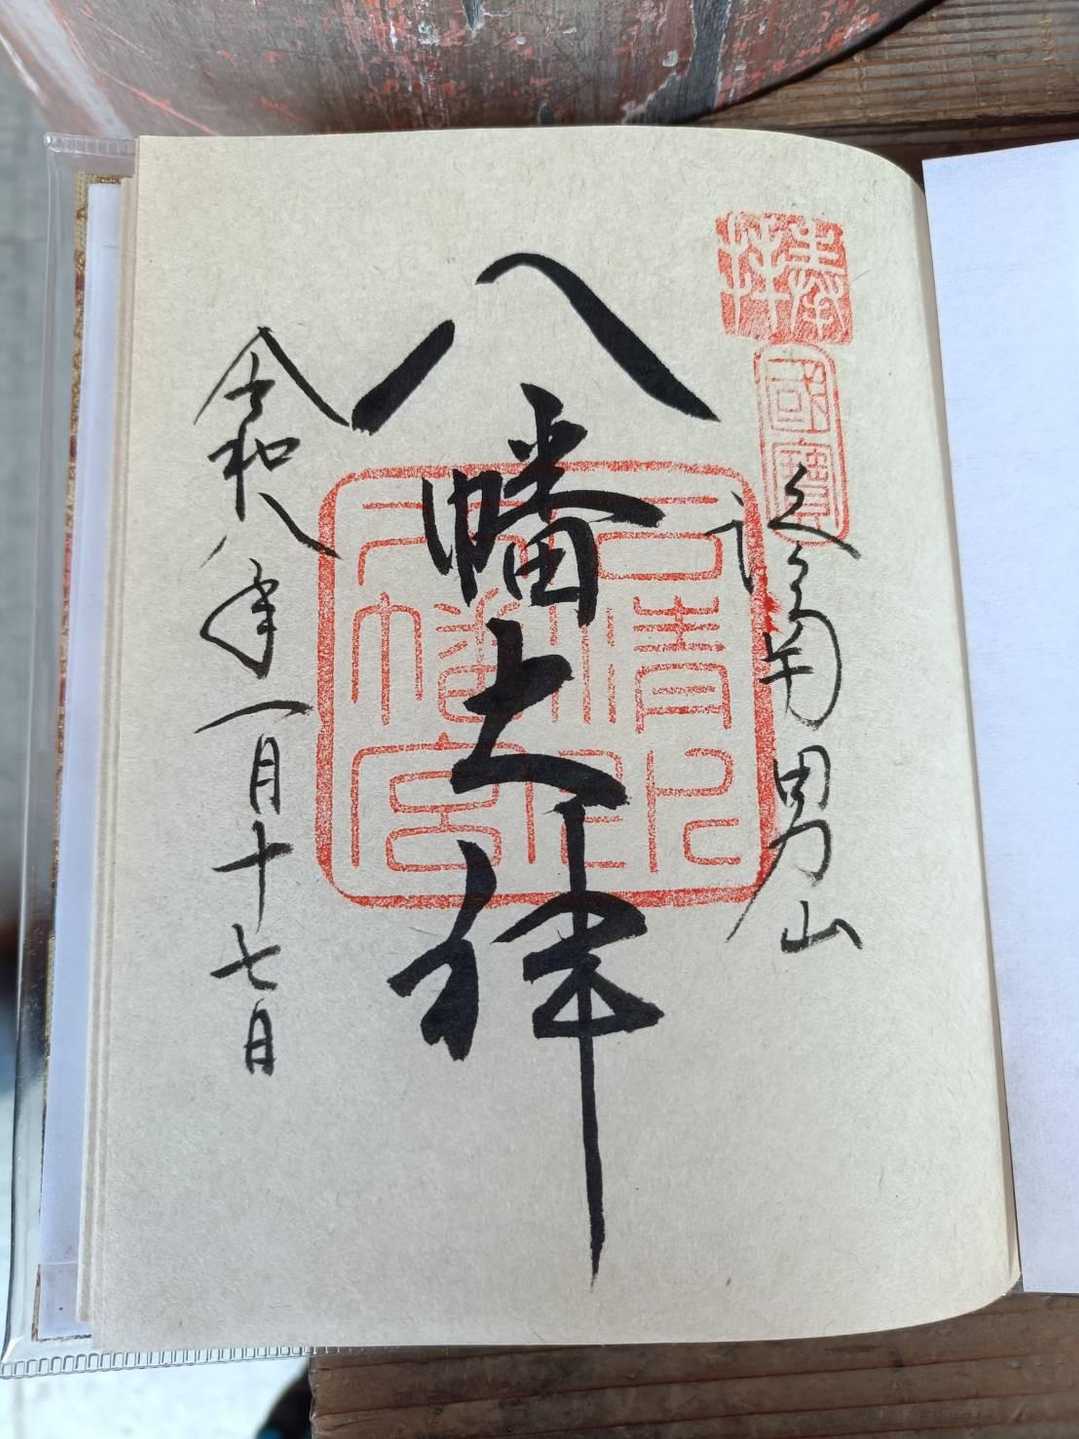 奉拝
國寶
洛南男山
八幡大神
石清水
八幡宮
令和八年一月十七日